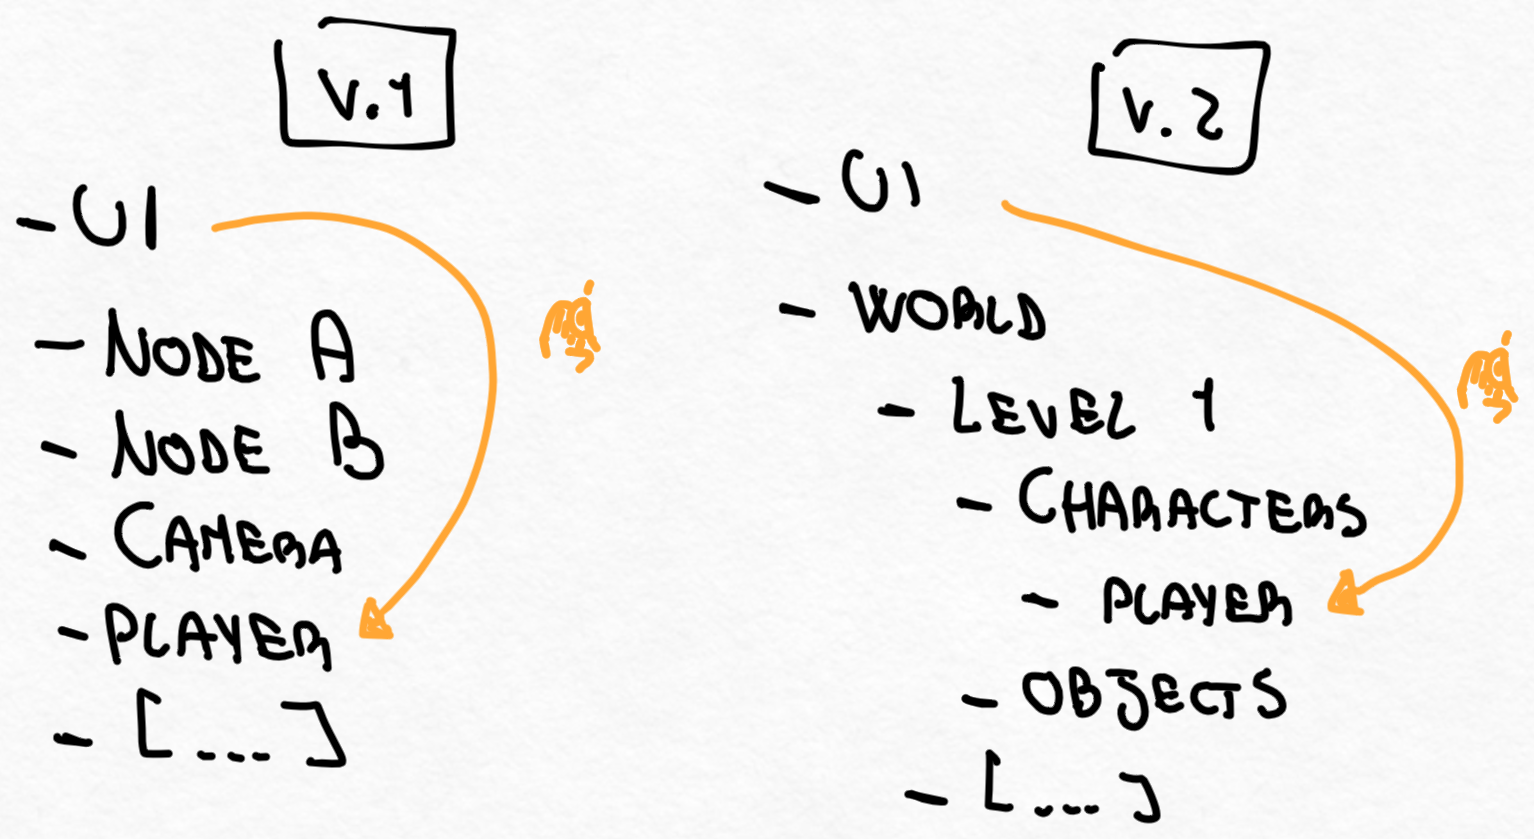 V.1
- UI
- NODE A
- NODE B
- CAMERA
- PLAYER
- [...]
V.2
- UI
- WORLD
- LEVEL 1
- CHARACTERS
- PLAYER
- OBJECTS
- [...]